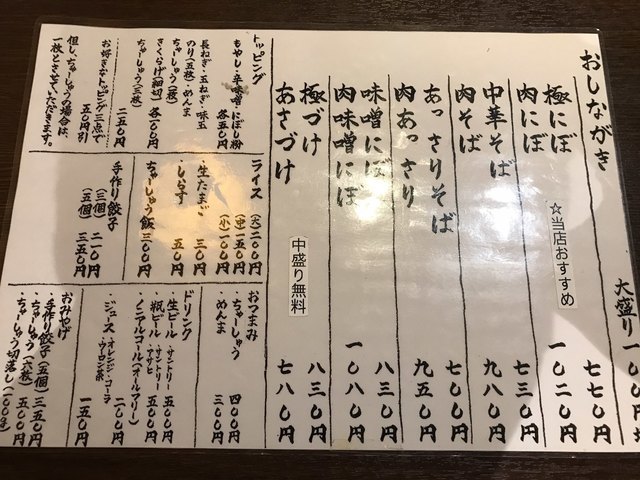 おしながき
大盛り 一〇〇円増
極にぼ 七七〇円
☆当店おすすめ
肉にぼ 一〇二〇円
中華そば 七〇〇円
肉そば 九五〇円
あっさりそば
肉あっさり
味噌にぼ 八三〇円
肉味噌にぼ 一〇八〇円
極づけ 八三〇円
あさづけ 七八〇円
中盛り無料
トッピング
もやし・辛味噌・にぼし粉
長ねぎ・玉ねぎ・味玉
のり(五枚)・めんま 各五〇円
ちゃーしゅう(一枚)
きくらげ(細切) 各一〇〇円
ちゃーしゅう(三枚) 二五〇円
お好きなトッピング三点で 五〇円引
但し、ちゃーしゅうの場合は、
一枚とさせていただきます。
ライス (大)二〇〇円
(中)一五〇円
(小)一〇〇円
・生たまご 五〇円
・しらす 五〇円
ちゃーしゅう飯 三〇〇円
手作り餃子
(三個) 二一〇円
(五個) 三五〇円
おつまみ
・ちゃーしゅう 四〇〇円
・めんま 三〇〇円
ドリンク
・生ビール・サントリー 五〇〇円
・瓶ビール・サントリー・アサヒ 五〇〇円
・ノンアルコール(オールフリー)
二〇〇円
・ジュース・オレンジ・コーラ・ウーロン茶
一五〇円
おみやげ
・手作り餃子(五個) 三五〇円
・ちゃーしゅう(六枚) 五〇〇円
・ちゃーしゅう切落し(一〇〇g)